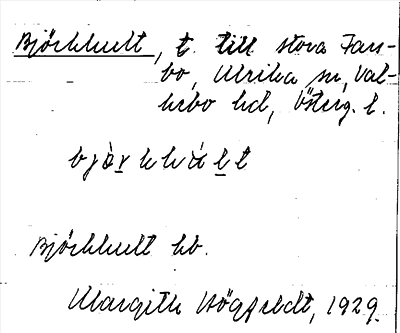 Björkhult, t. till stora Jars-
bo, Ulrika sn, Val-
kebo hd, Österg. l.
Björkhult hb.
Margith Högfeldt, 1929.